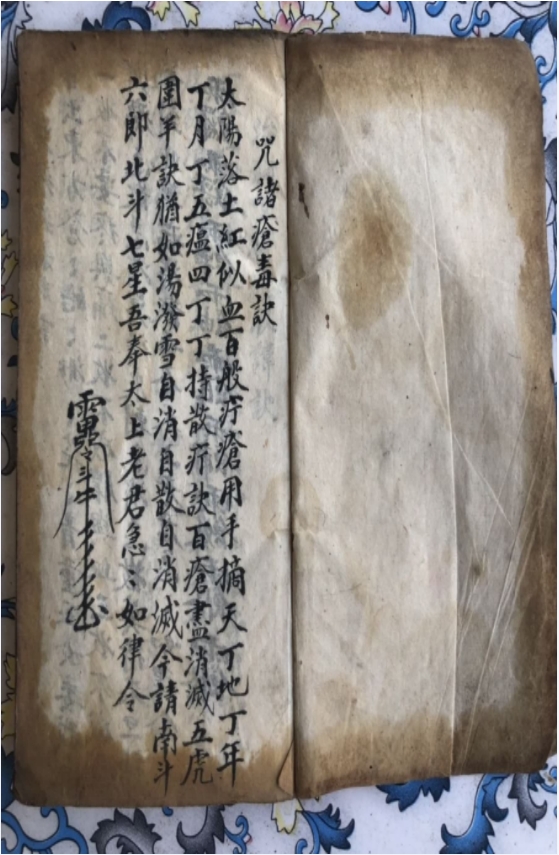 咒諸瘡毒訣
太陽落土紅似血百般疔瘡用手摘天丁地丁年
丁月丁五瘟四丁丁持散疔訣百瘡盡消滅五虎
圍羊訣猶如湯潑雪自消自散自消滅今請南斗
六郎北斗七星吾奉太上老君急〻如律令